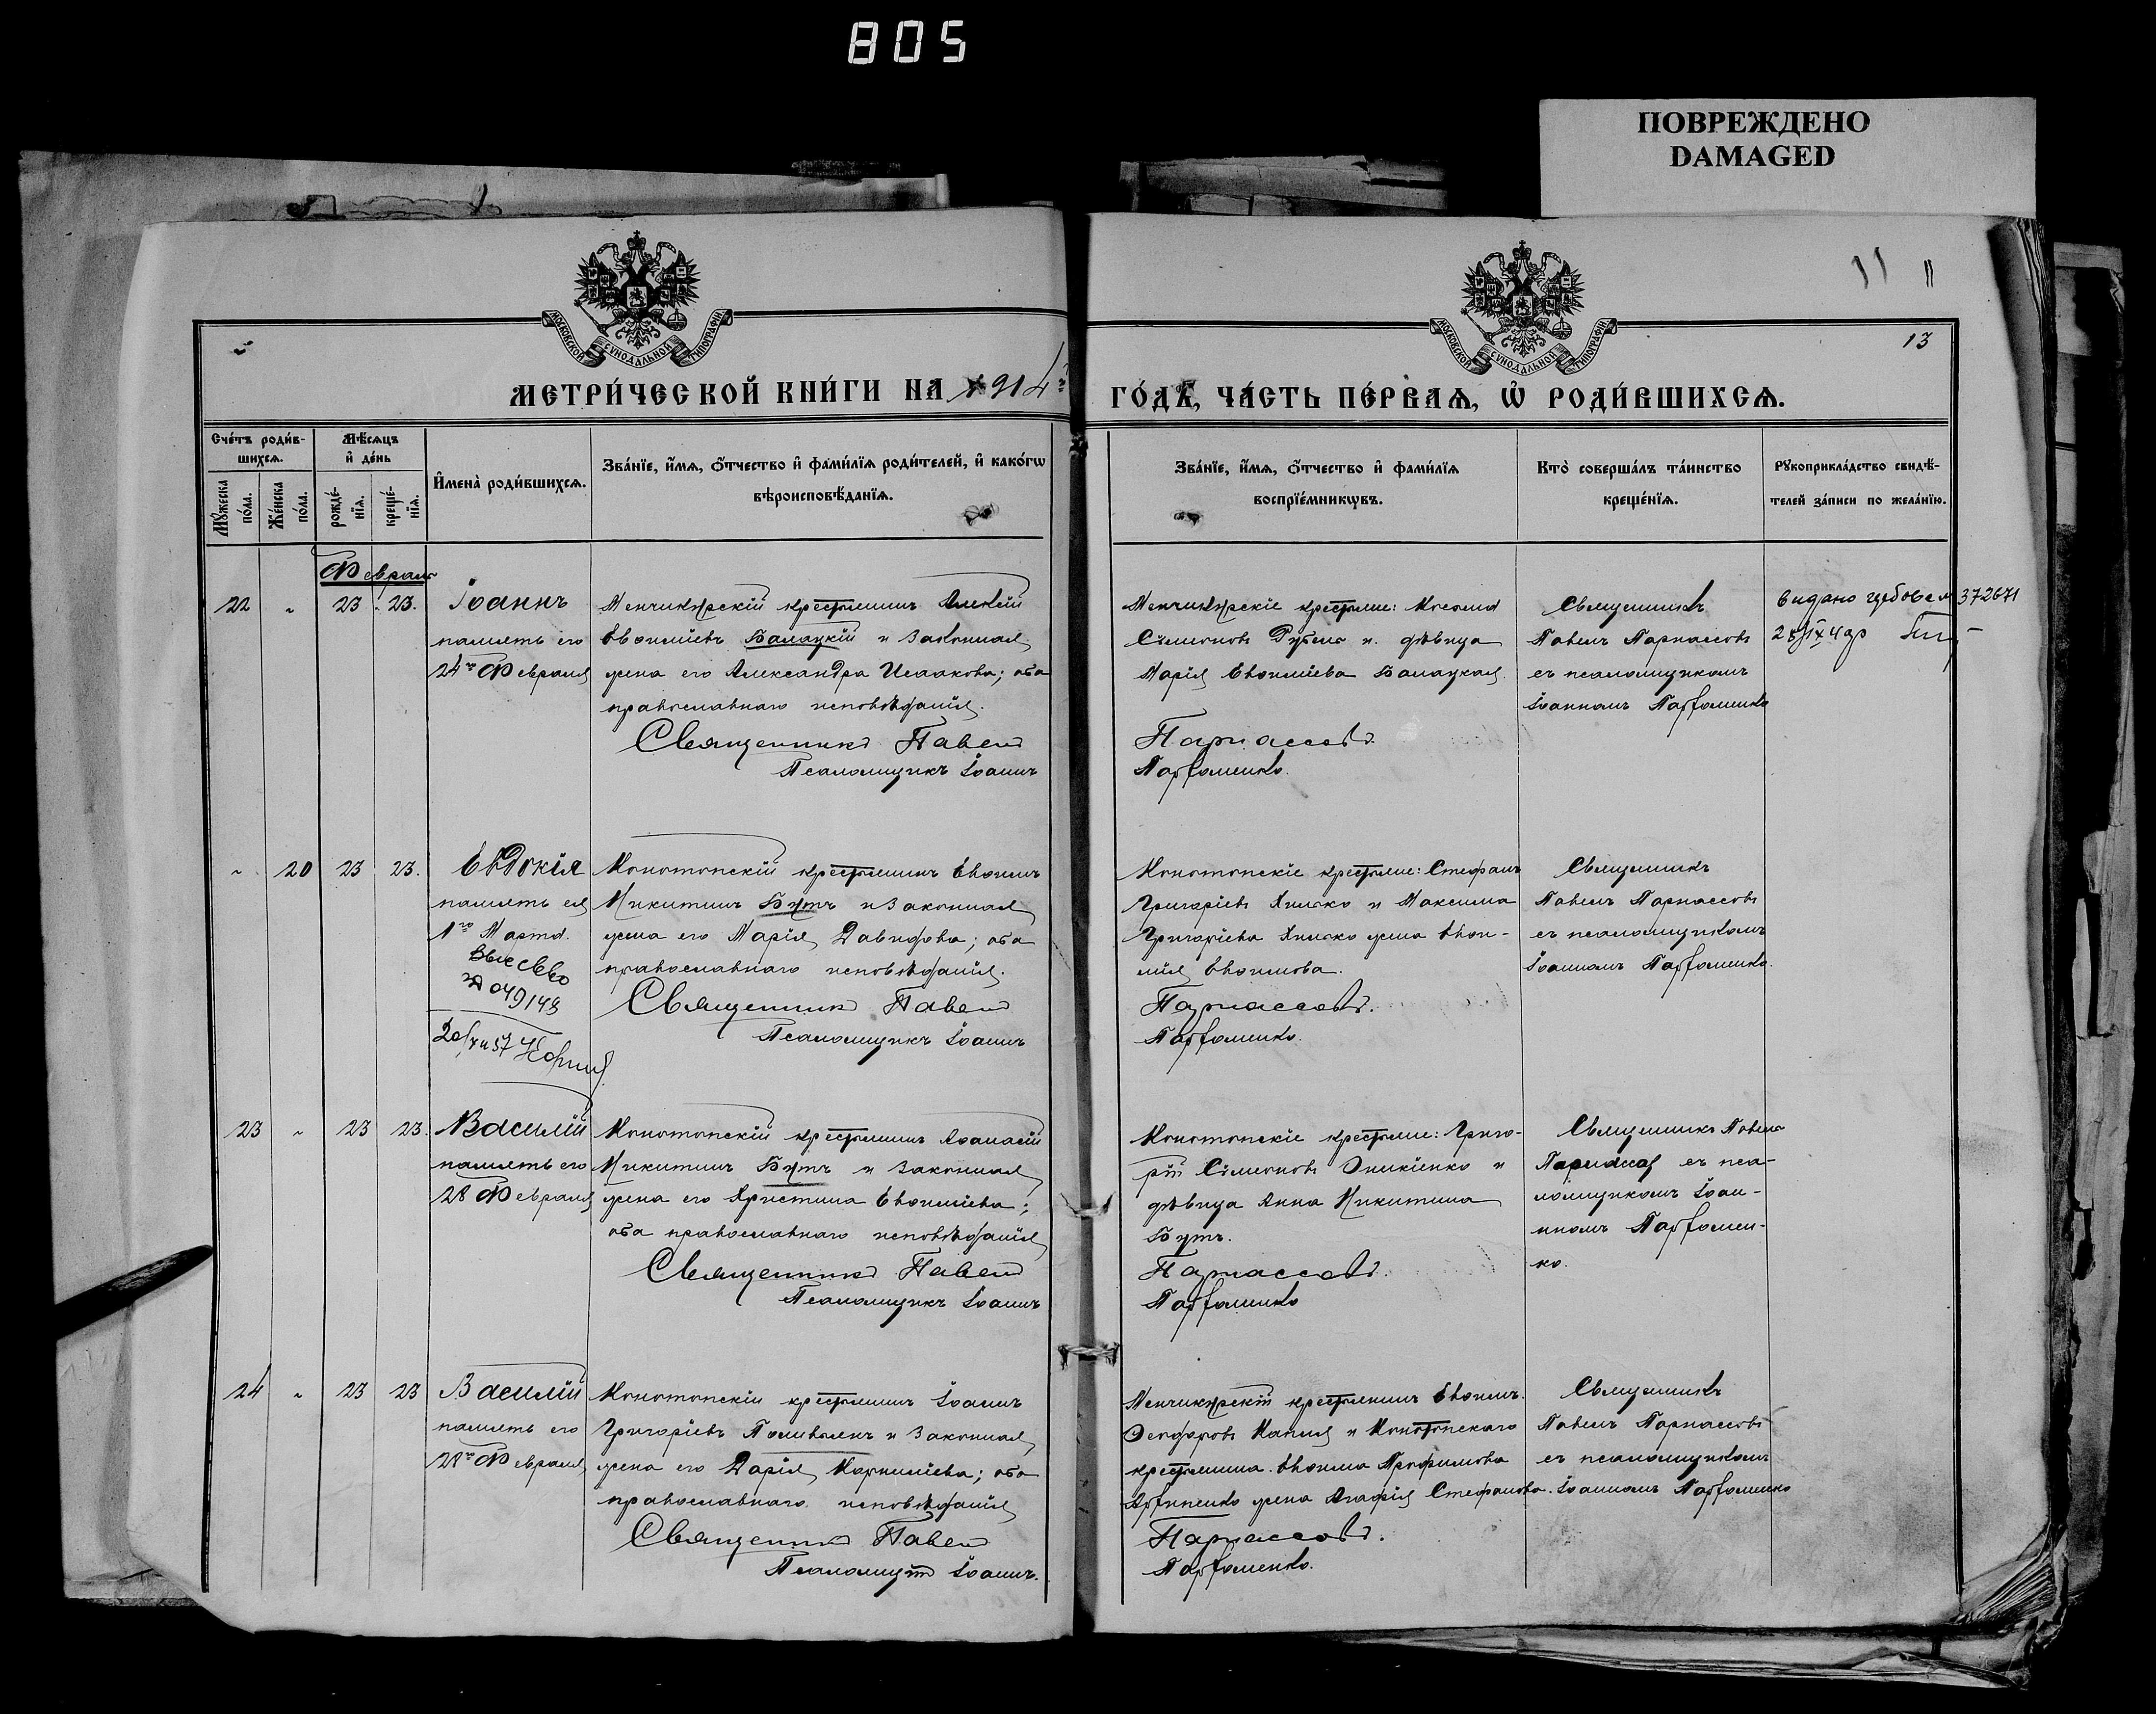 805
ПОВРЕЖДЕНО
DAMAGED
11 11
13
МОСКОВСКОЙ СѴНОДАЛЬНОЙ ТИПОГРАФІИ
МОСКОВСКОЙ СѴНОДАЛЬНОЙ ТИПОГРАФІИ
МЕТРИ́ЧЕСКОЙ КНИ́ГИ НА 1914
ГО́ДЪ, ЧА́СТЬ ПЕ́РВАѦ, Ѡ҆ РОДИ́ВШИХСѦ.
Сче́тъ роди́в-
шихсѧ.
Мꙋ́жеска по́ла.
Же́нска по́ла.
Мѣ́сѧцъ
и҆ де́нь
рожде́-
нїѧ.
креще́-
нїѧ.
И҆мена̀ роди́вшихсѧ.
Зва́нїе, и҆́мѧ, ѻ҆́тчество и҆ фами́лїѧ роди́телей, и҆ како́гѡ
вѣроисповѣ́данїѧ.
Зва́нїе, и҆́мѧ, ѻ҆́тчество и҆ фами́лїѧ
воспрїе́мникѡвъ.
Кто̀ соверша́лъ та́инство
креще́нїѧ.
Рꙋкоприкла́дство свидѣ́-
телей за́писи по жела́нїю.
Февраль
22 „ 23 23. Іоаннъ
память его
24го Февраля
крестьянинъ Алексій
Евѳиміевъ Балацкій и законная
жена его Александра Исаакова; оба
православнаго исповѣданія.
Священникъ Павелъ
Псаломщикъ Іоаннъ
крестьяне:
Сѵмеоновъ и дѣвица
Марія Евѳиміева Балацкая.
Парнассовъ.
Парфоменко.
Священникъ
Павелъ Парнассовъ
съ псаломщикомъ
Іоанномъ Парфоменко
видано 372671
„ 20 23 23. Евдокія
память ея
1го Марта.
049148
Конотопскій крестьянинъ Евѳимъ
Никитинъ Бутъ и законная
жена его Марія Давидова; оба
православнаго исповѣданія.
Священникъ Павелъ
Псаломщикъ Іоаннъ
Конотопскіе крестьяне: Стефанъ
Григоріевъ и Максима
Григоріева жена Евѳи-
мія Евѳимова.
Парнассовъ.
Парфоменко.
Священникъ
Павелъ Парнассовъ
съ псаломщикомъ
Іоанномъ Парфоменко.
23 „ 23 23. Василій
память его
28 Февраля
Конотопскій крестьянинъ Аѳанасій
Никитинъ Бутъ и законная
жена его Христина Евѳиміева;
оба православнаго исповѣданія
Священникъ Павелъ
Псаломщикъ Іоаннъ
Конотопскіе крестьяне: Григо-
рій Сѵмеоновъ Оникіенко и
дѣвица Анна Никитина
Бутъ.
Парнассовъ.
Парфоменко
Священникъ Павелъ
съ пса-
ломщикомъ Іоан-
номъ Парфомен-
ко.
24 „ 23 23 Василій
память его
28го Февраля
Конотопскій крестьянинъ Іоаннъ
Григоріевъ и законная
жена его Дарія Корниліева; оба
православнаго исповѣданія
Священникъ Павелъ
Псаломщикъ Іоаннъ.
крестьянинъ Евѳимъ
Ѳеодоровъ и Конотопскаго
крестьянина Евѳима Трофимова
жена Агафія Стефанова.
Парнассовъ.
Парфоменко.
Священникъ
Павелъ Парнассовъ
съ псаломщикомъ
Іоанномъ Парфоменко